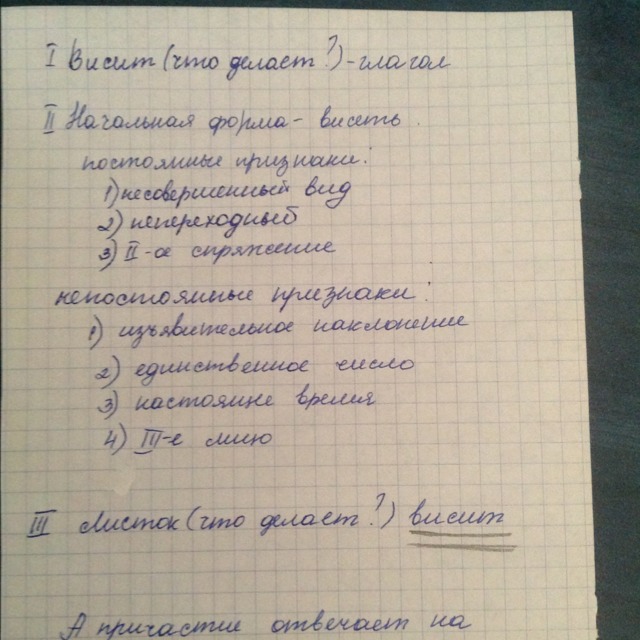 I Висит (что делает?) - глагол
II Начальная форма - висеть.
постоянные признаки:
1) несовершенный вид
2) непереходный
3) II-ое спряжение
непостоянные признаки:
1) изъявительное наклонение
2) единственное число
3) настоящие время
4) III-е лицо
III Листок (что делает?) висит
А причастие отвечает на